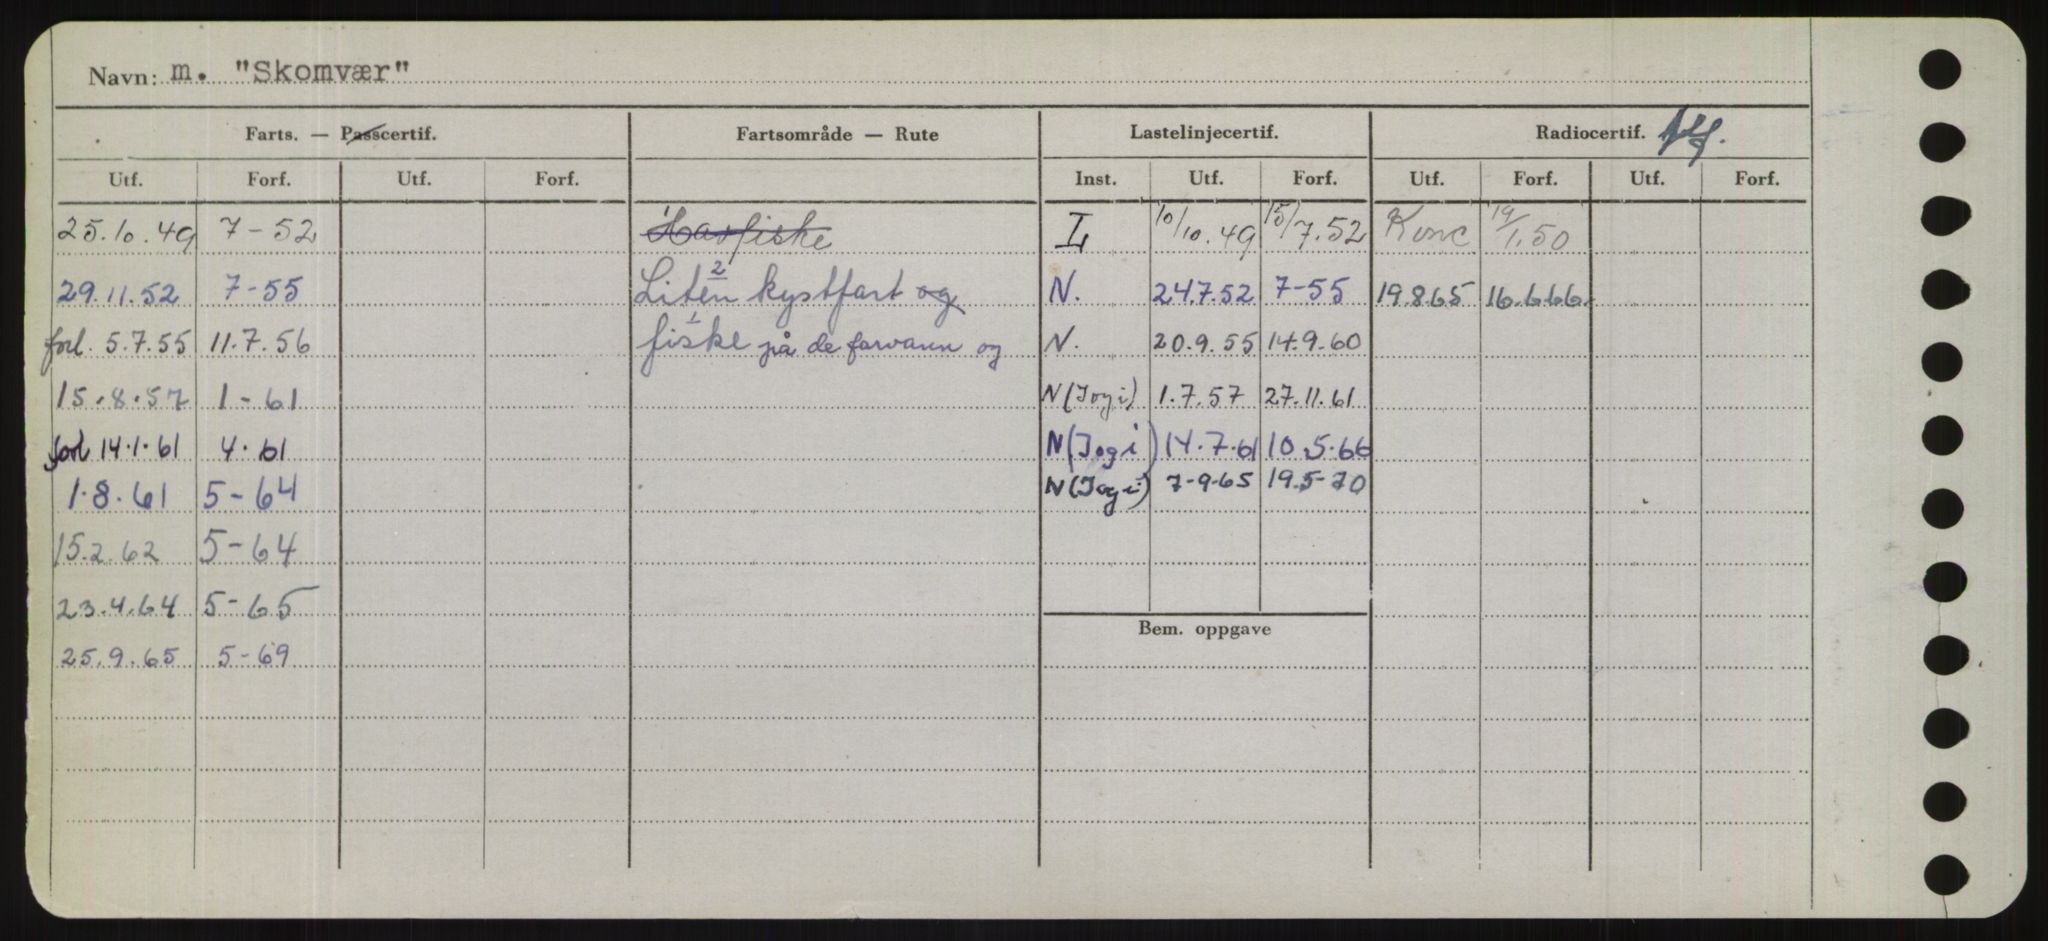 Navn: m. "Skomvær"
Farts. — Passcertif. Fartsområde — Rute Lastelinjecertif. Radiocertif. tlf.
Utf. Forf. Utf. Forf. Inst. Utf. Forf. Utf. Forf. Utf. Forf.
25.10.49 7-52 Havfiske I, 10/10.49 15/7.52 Konc 19/1.50
29.11.52 7-55 Liten 2 kystfart og N. 24.7.52 7-55 19.8.65 16.6.66.
forl. 5.7.55 11.7.56 fiske 1 på de farvann og N. 20.9.55 14.9.60
15.8.57 1-61 N(I og i) 1.7.57 27.11.61
forl 14.1.61 4.61 N(I og i) 14.7.61 10.5.66
1.8.61 5-64 N(I og i) 7-9-65 19.5-70
15.2.62 5-64
23.4.64 5-65
Bem. oppgave
25.9.65 5-69